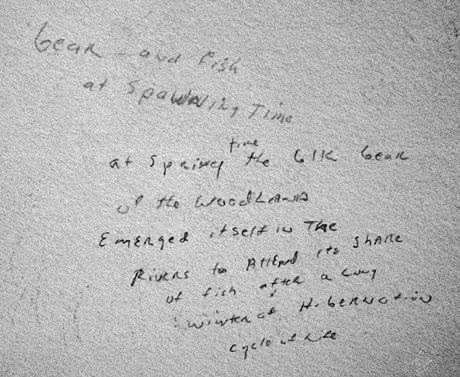 bear and fish
at Spawning Time
time
at Spring the blk bear
of the WoodLands
Emerged itself in The
Rivers to Attend its Share
of fish after a Long
winter of Hibernation
cycle of Life